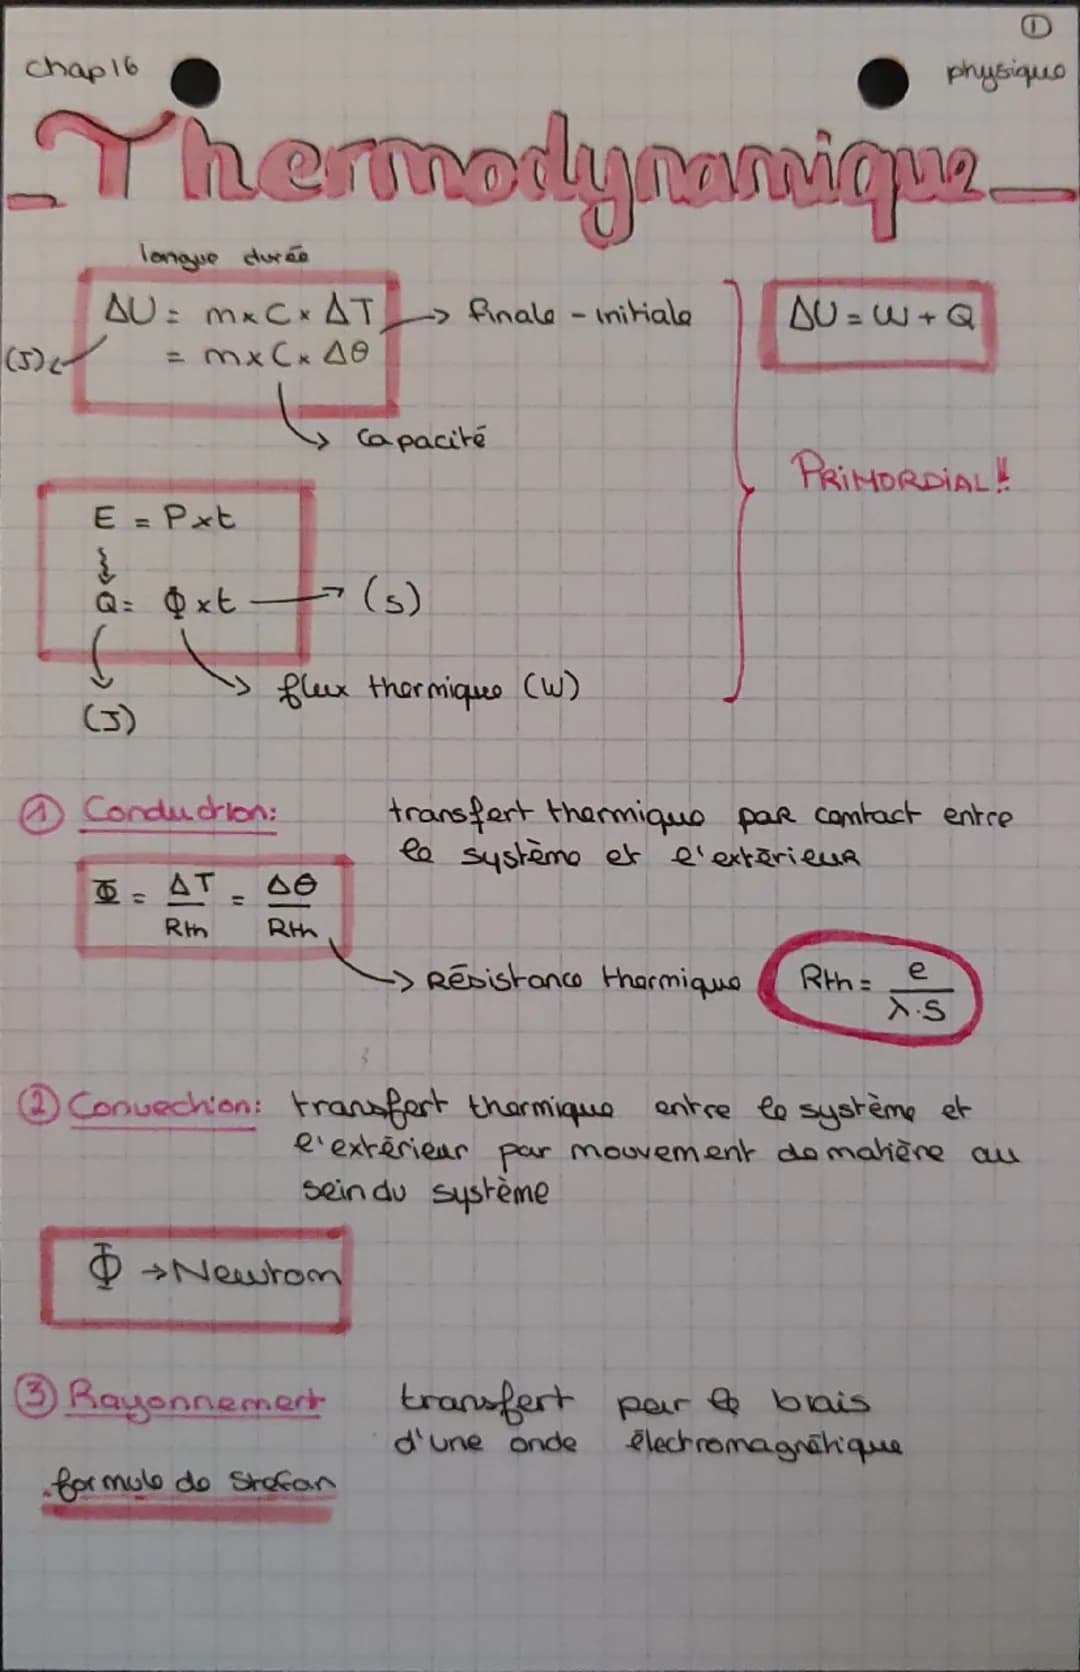 ①
chap 16
physique
Thermodynamique
longue durée
ΔU = m x C x ΔT → finale - initiale
(J) = m x C x Δθ
capacité
ΔU = W + Q
PRIMORDIAL!!
E = P x t
Q = Φ x t → (s)
flux thermique (W)
(J)
① Conduction: transfert thermique par contact entre
le système et l'extérieur
Φ = ΔT/Rth = Δθ/Rth
→ Résistance thermique Rth = e/λ.S
② Convection: transfert thermique entre le système et
l'extérieur par mouvement de matière au
sein du système
Φ → Newton
③ Rayonnement transfert par le biais
d'une onde électromagnétique
formule de Stefan